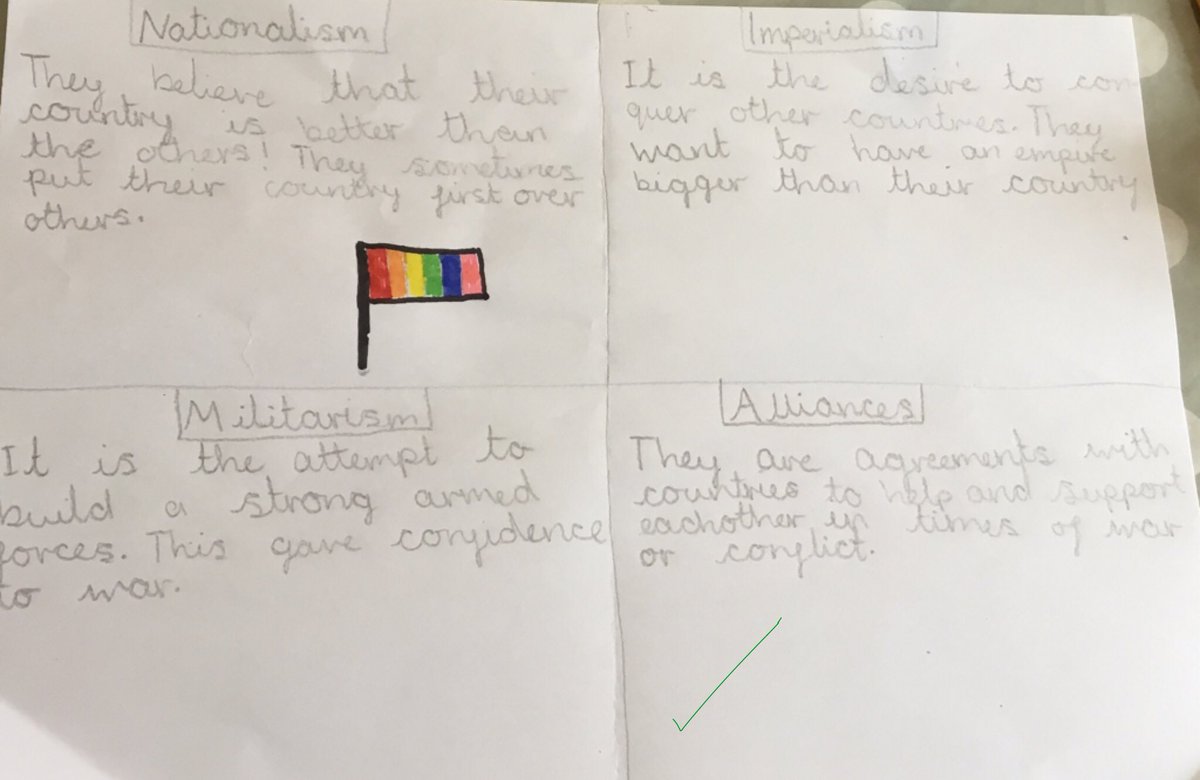 Nationalism
They believe that their
country is better than
the others! They sometimes
put their country first over
others.
Imperialism
It is the desire to con
quer other countries. They
want to have an empire
bigger than their country
Militarism
It is the attempt to
build a strong armed
forces. This gave confidence
to war.
Alliances
They are agreements with
countries to help and support
eachother in times of war
or conflict.